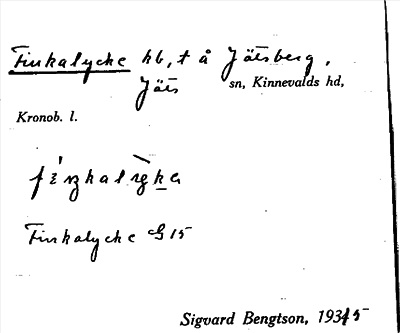 Finkalycke hb, t å Jätsberg,
Jäts sn, Kinnevalds hd,
Kronob. l.
Finkalycke G 15
Sigvard Bengtson, 1935